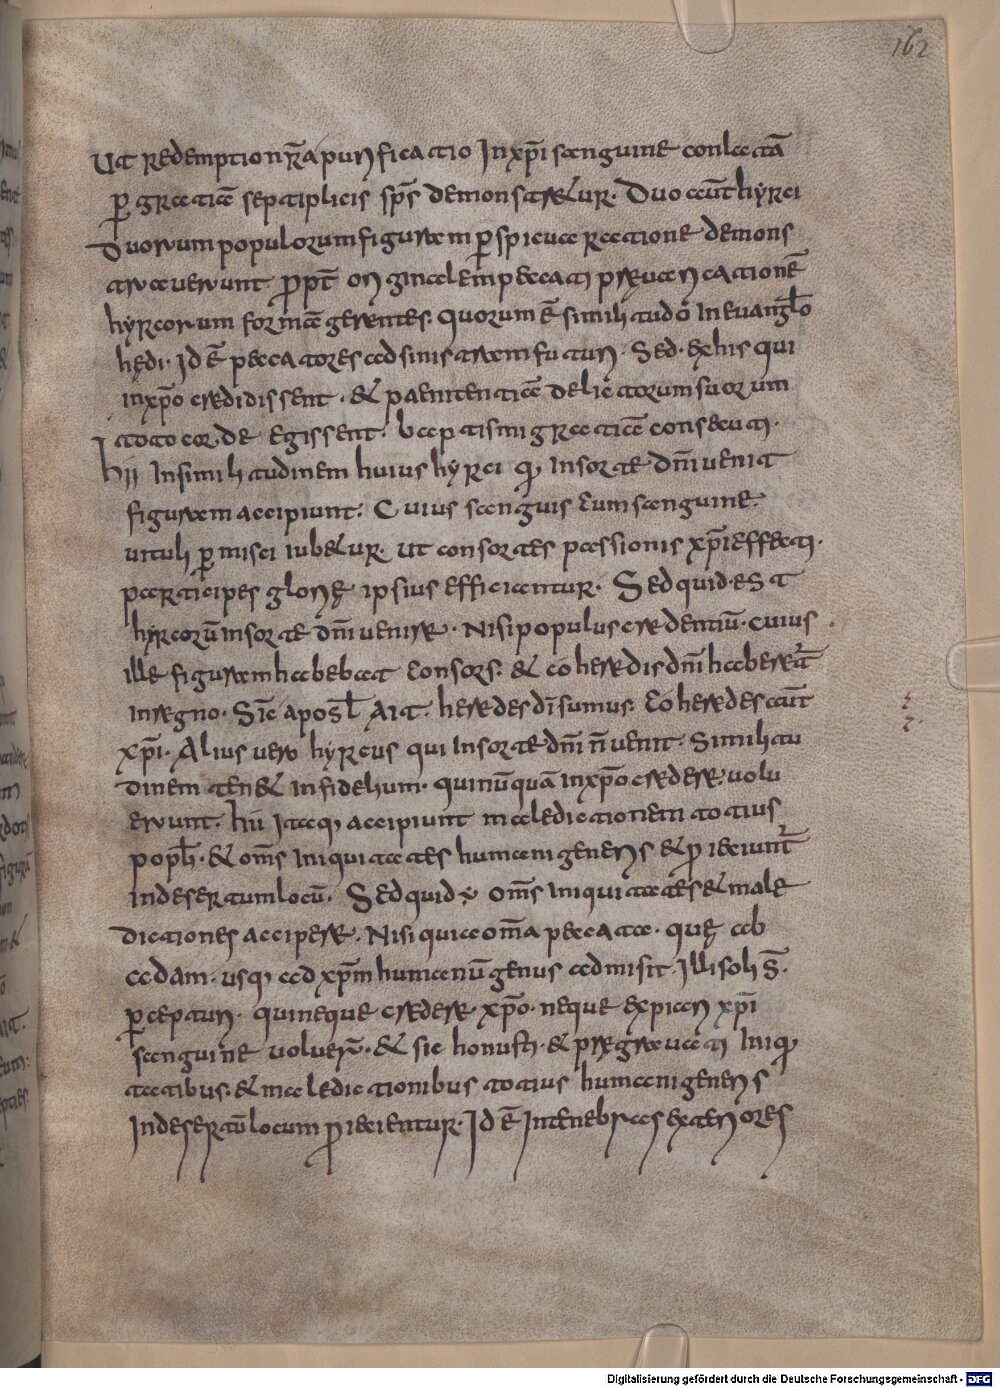 162
Ut redemptio nr̄a purificatio In xp̄i sanguine conlatā
p̄ gratiā septiplicis sp̄s demonstretur. Duo aut̄ hyrci
duorum populorum figuram p̄spicua ratione demons
traverunt prop̄t originalem peccati prevaricationē
hyrcorum formā gerentes. Quorum ē similitudo In evangl̄o
hedi. Id ē peccatores ad sinistram futuri. Sed. ex his qui
in xp̄o credidissent. & paenitentiā delictorum suorum
toto cor.de egissent. baptismi gratiā consecuti.
hii Insimilitudinem huius hyrci q; in sorte dn̄i venit
figuram accipiunt. Cuius sanguis cum sanguine.
vituli p̄misci iubetur. ut consortes passionis xp̄i effecti.
participes glorię ipsius efficiantur. Sed quid. est
hyrcorū in sorte dn̄i venire. Nisi populus credentiū. cuius
ille figuram habebat consors. & coheredis dn̄i haberet̄
in regno. Sic apostl̄ Ait. heredes dī sumus. Coheredes aut̄
xp̄i. Alius vero hyrcus qui In sorte dn̄i n̄ venit. Similitu
dinem tenet Infidelium. qui nūquā in xp̄o credere. volu
erunt. hii Itaq; accipiunt maledictionem totius
popl̄i. & om̄s Iniquitates humani generis & p̄iciunt̄
in desertum locū. Sed quid ÷ om̄s Iniquitates & male
dictiones accipere. Nisi quia om̄a peccata. quę ab
adam. usq; ad xp̄m humanū genus admisit. Illi soli s̄.
p̄cepturi. qui neque credere. xp̄o. neque expiari xp̄i
sanguine voluer̄. & sic honusti & pręgravati Iniq;
tatibus. & maledictionibus totius humani generis
In desertū locum p̄icientur. Id ē In tenebras exteriores
Digitalisierung gefördert durch die Deutsche Forschungsgemeinschaft - DFG